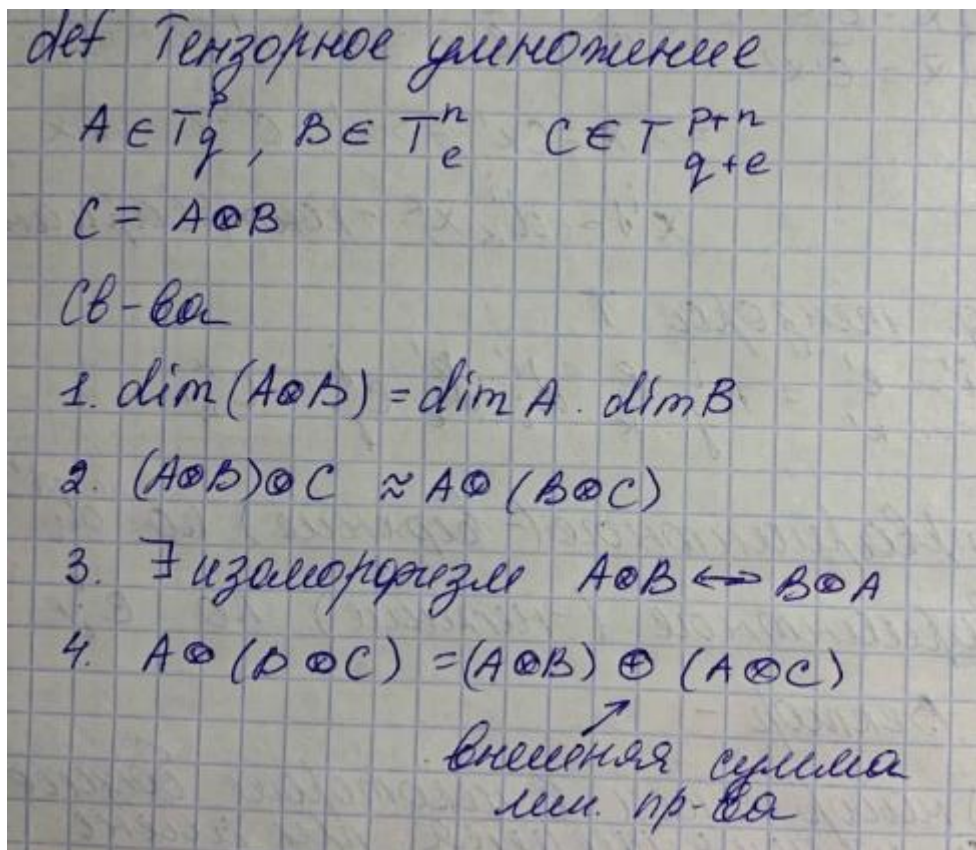 def Тензорное умножение
A ∈ T^p_q, B ∈ T^n_e C ∈ T^{p+n}_{q+e}
C = A⊗B
Св-ва
1. dim(A⊗B) = dim A · dim B
2. (A⊗B)⊗C ≈ A⊗(B⊗C)
3. ∃ изоморфизм A⊗B ↔ B⊗A
4. A⊗(B⊗C) = (A⊗B) ⊕ (A⊗C)
внешняя сумма
лин. пр-ва